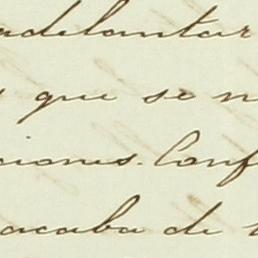 adelantar
que se n
ciones. Conf
acaba de